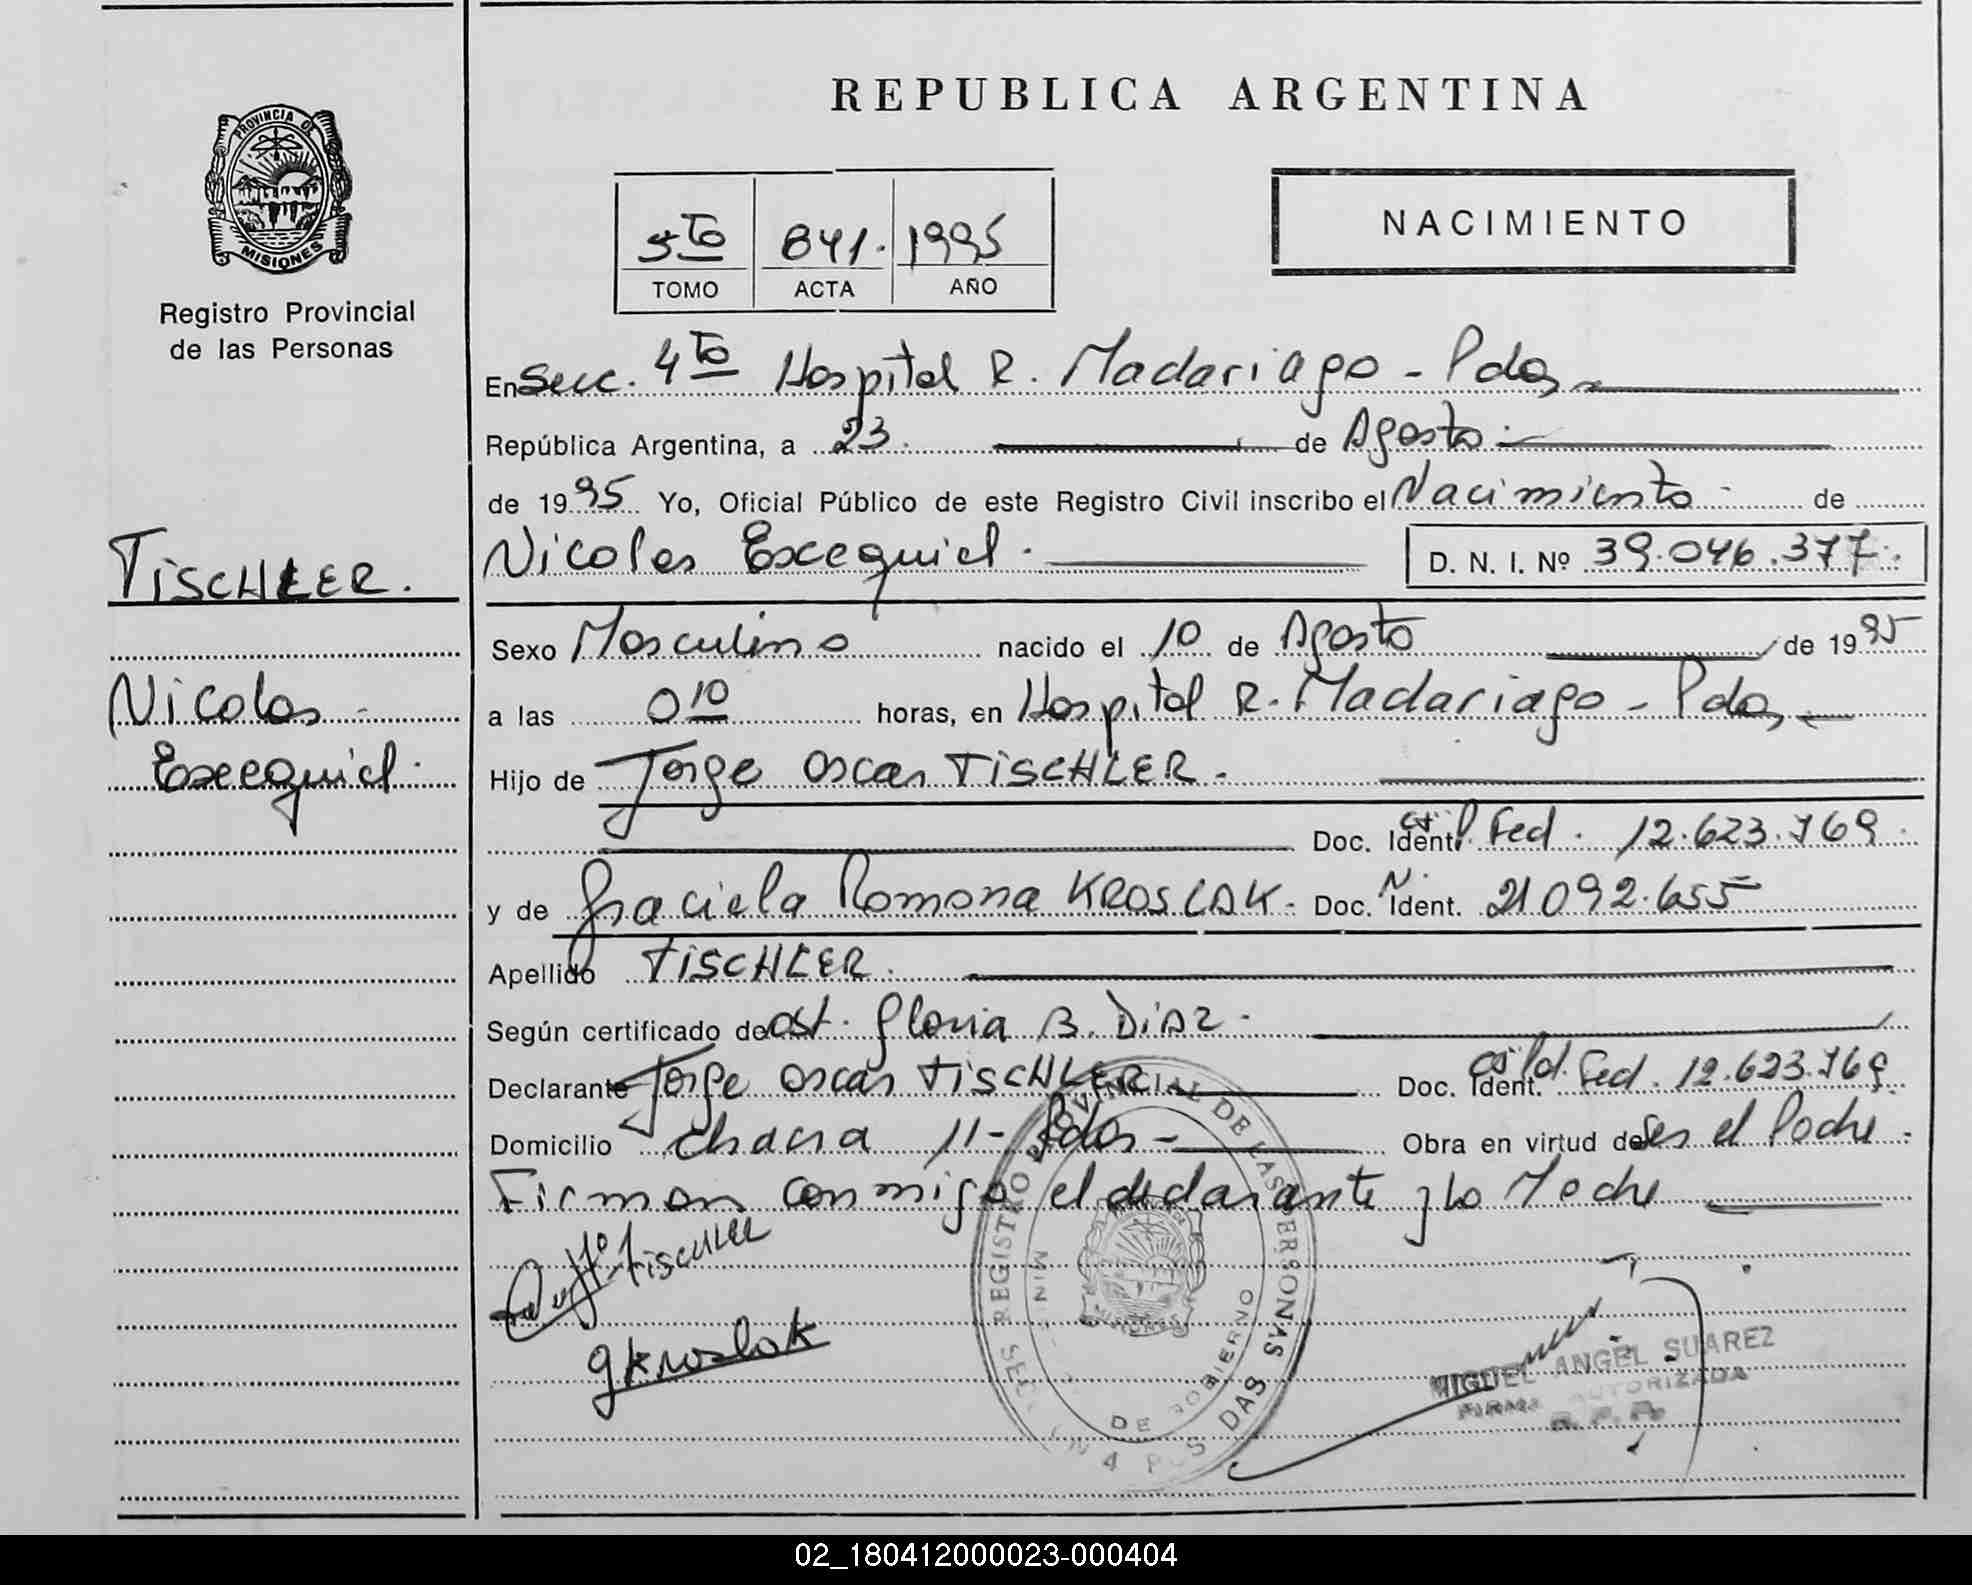 REPUBLICA ARGENTINA
PROVINCIA DE
MISIONES
Registro Provincial
de las Personas
5to 841. 1995
TOMO ACTA AÑO
NACIMIENTO
En Secc. 4to Hospital R. Madariaga - Pdas
República Argentina, a 23. de Agosto.
de 1995 Yo, Oficial Público de este Registro Civil inscribo el Nacimiento de
Nicolas Exequiel. D. N. I. Nº 39.046.377.
TISCHLER.
Sexo Masculino nacido el 10 de Agosto de 1995
Nicolas
a las 0 10 horas, en Hospital R. Madariaga - Pdas
Exequiel.
Hijo de Jorge Oscar TISCHLER.
Doc. Ident. Fed. 12.623.769.
y de Graciela Ramona KROSLAK. Doc. Ident. 21.092.655
Apellido TISCHLER.
Según certificado de ost. Gloria B. DIAZ.
Declarante Jorge Oscar TISCHLER Doc. Ident. Fed. 12.623.769.
Domicilio chacra 11 - Pdas - Obra en virtud de Ser el Padre.
Firman conmigo el declarante y la Madre
Tischler
gKroslak
REGISTRO PROVINCIAL DE LAS PERSONAS
DE GOBIERNO
MISIONES
POSADAS
MIGUEL ANGEL SUAREZ
FIRMA AUTORIZADA
R. P. P.
02_180412000023-000404